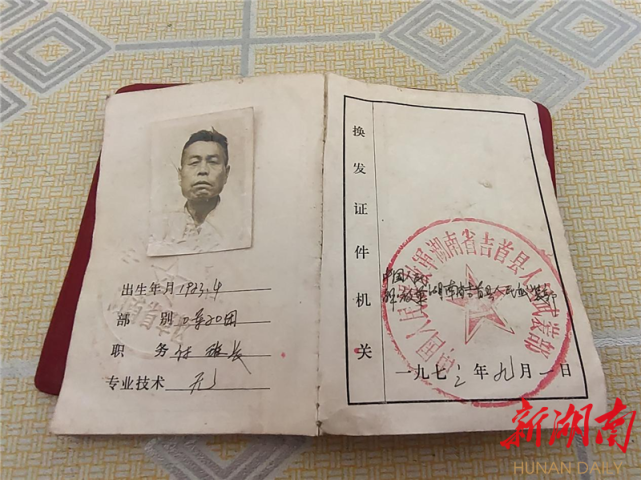 出生年月 1923.4
部别
职务 任 班长
专业技术 无
换发证件机关
中国人民
解放军湖南省吉首县人民武装部
一九七三年九月一日
中国人民解放军湖南省吉首县人民武装部
新湖南
HUNAN DAILY